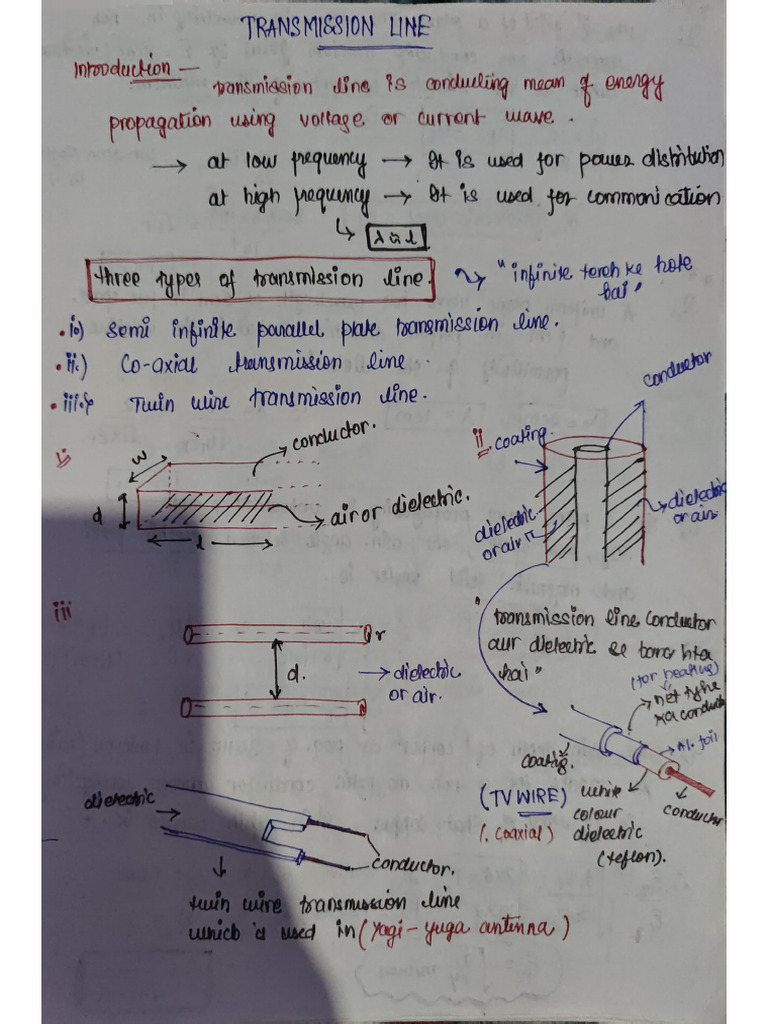 TRANSMISSION LINE
Introduction –
transmission line is conducting mean of energy
propagation using voltage or current wave.
→ at low frequency → It is used for power distribution
at high frequency → It is used for commonication
↳ λ ≈ l
three types of transmission line. "infinite tereh ke hote
hai"
i) semi infinite parallel plate transmission line.
ii.) Co-axial transmission line.
iii.) Twin wire transmission line.
i)
w
conductor.
d
air or dielectric.
l
ii. coating.
conductor
dielectric
or air
dielectric
or air
iii
r
d.
→ dielectric
or air.
"transmission line conductor
aur dielectric se bana hota
hai"
(for heating)
net type
ka conductor
Al. foil
coating.
(TV WIRE)
(Coaxial)
white
colour
dielectric
(teflon).
conductor
dielectric →
conductor.
↓
twin wire transmission line
which is used in (yagi-yuga antenna)